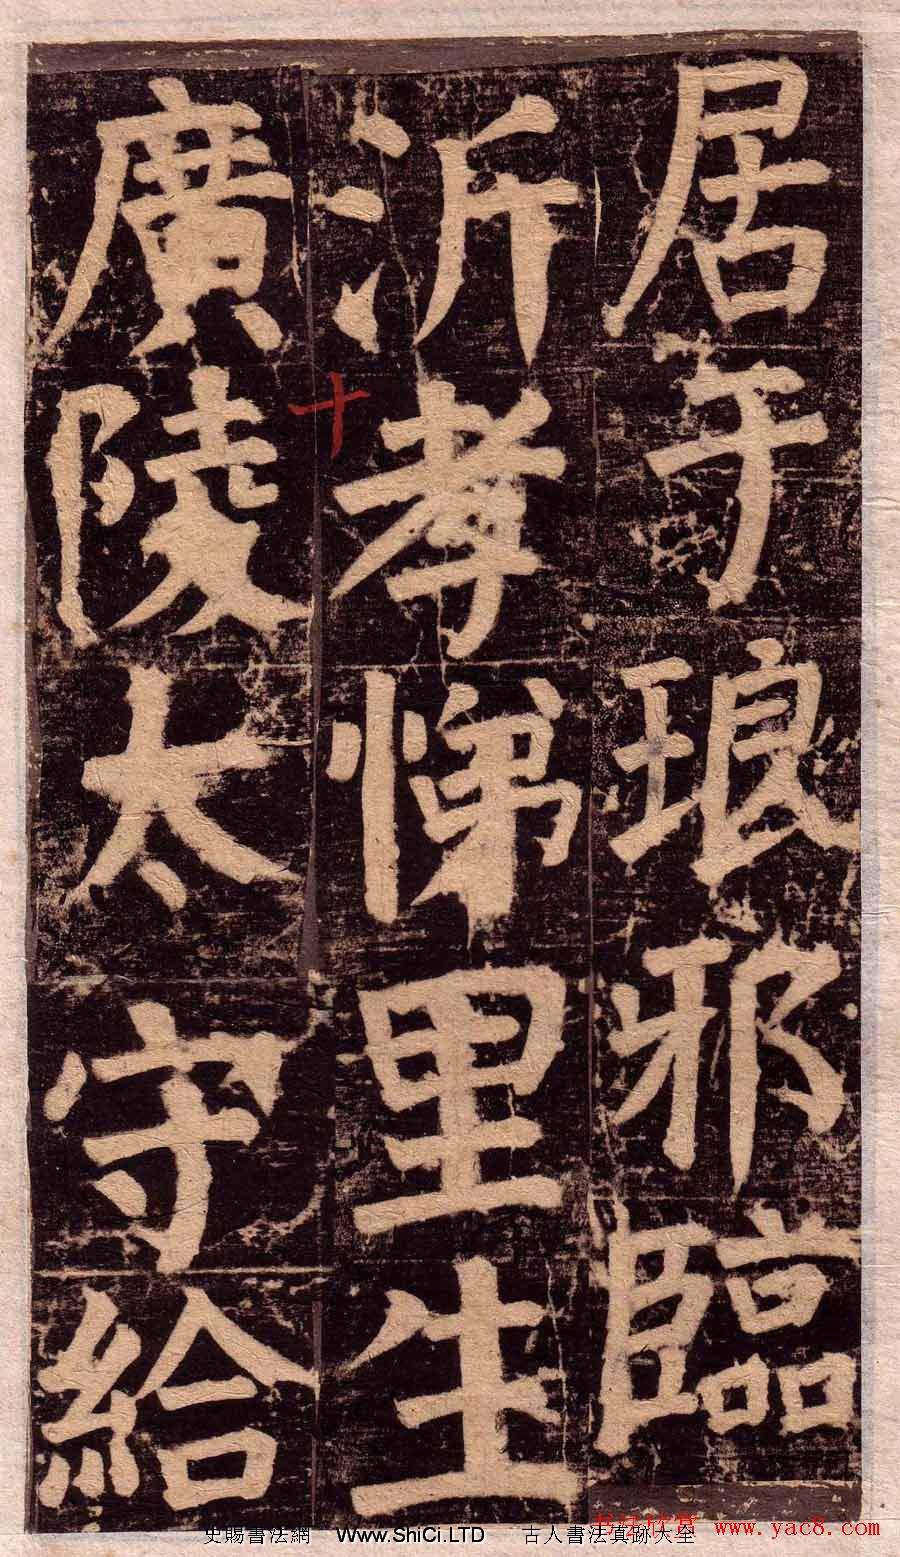 居于琅邪臨
沂孝悌里生
廣陵太守給
十
史賜書法網 Www.ShiCi.LTD 古人書法真跡大全
书法欣赏 www.yac8.com